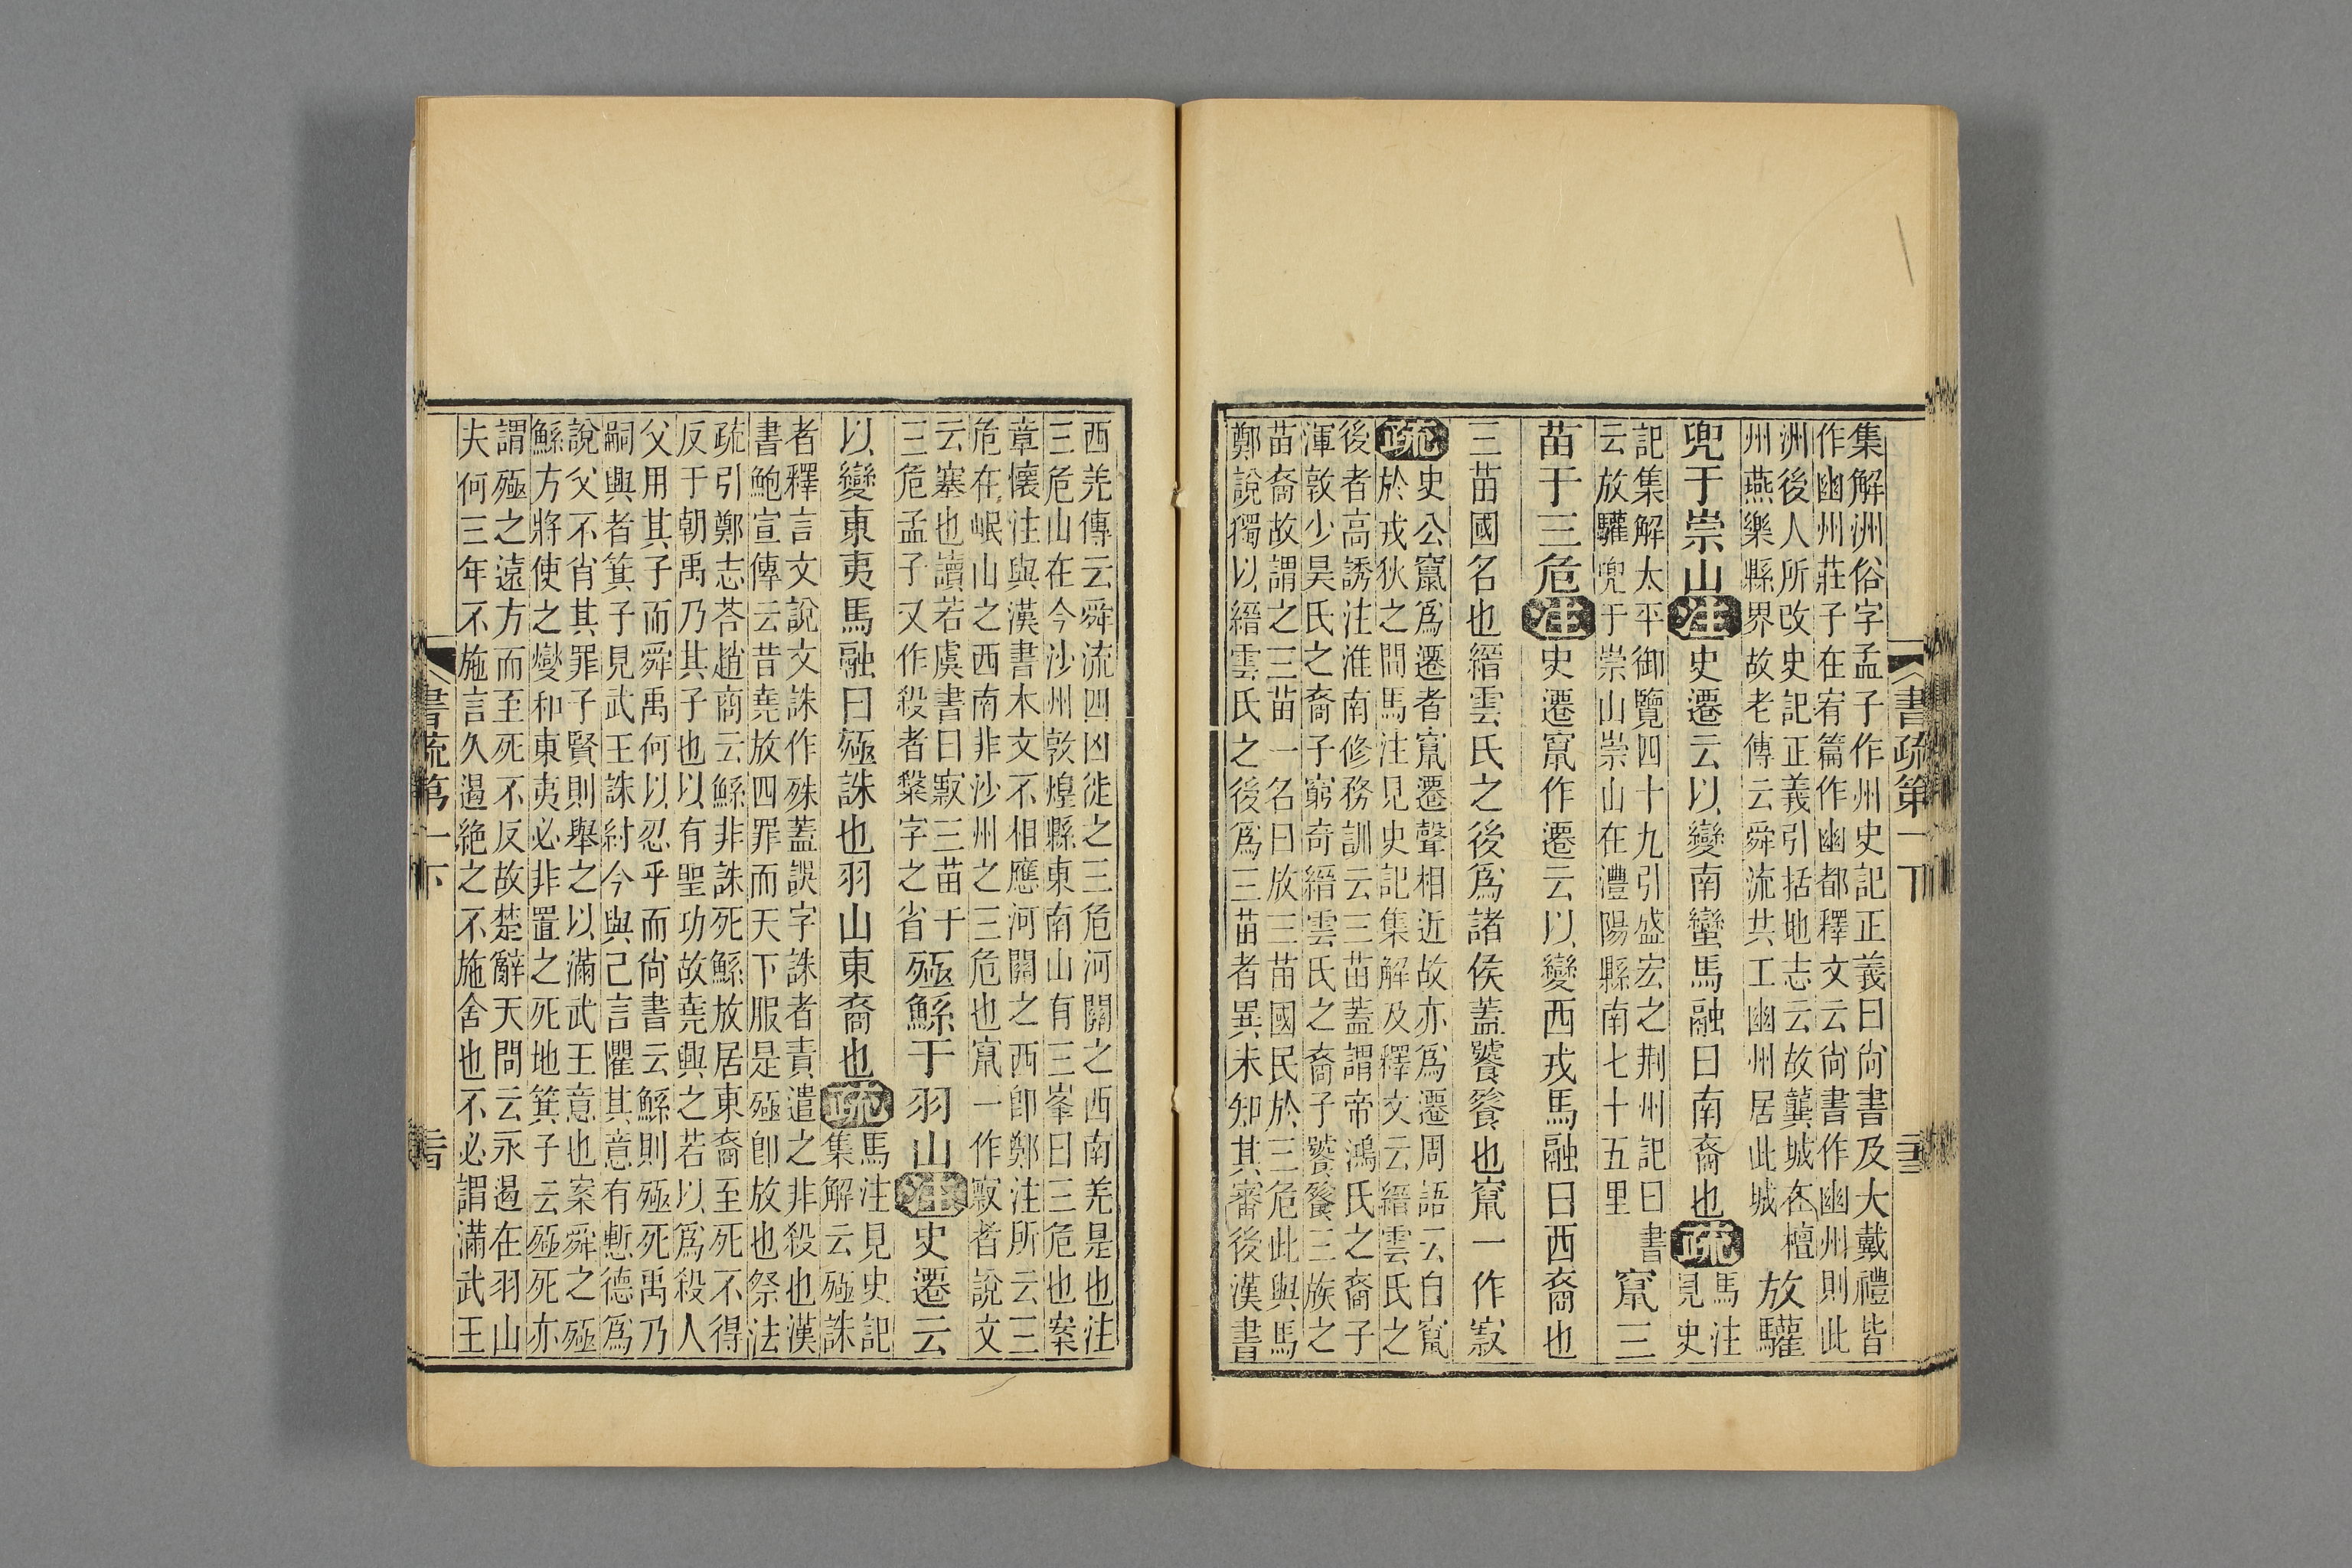 書疏第一下
集解洲俗字孟子作州史記正義曰尙書及大戴禮皆
作幽州莊子在宥篇作幽都釋文云尙書作幽州則此
洲後人所改史記正義引括地志云故龔城在檀
州燕樂縣界故老傳云舜流共工幽州居此城
放驩
兜于崇山注史遷云以變南蠻馬融曰南裔也疏
馬注
見史
記集解太平御覽四十九引盛宏之荆州記曰書
云放驩兜于崇山崇山在澧陽縣南七十五里
竄三
苗于三危注史遷竄作遷云以變西戎馬融曰西裔也
三苗國名也縉雲氏之後爲諸侯蓋饕餮也竄一作㝮
疏史公竄爲遷者竄遷聲相近故亦爲遷周語云自竄
於戎狄之間馬注見史記集解及釋文云縉雲氏之
後者高誘注淮南修務訓云三苗蓋謂帝鴻氏之裔子
渾敦少昊氏之裔子窮奇縉雲氏之裔子饕餮三族之
苗裔故謂之三苗一名曰放三苗國民於三危此與馬
鄭說獨以縉雲氏之後爲三苗者異未知其審後漢書
西羌傳云舜流四凶徙之三危河關之西南羌是也注
三危山在今沙州敦煌縣東南山有三峯曰三危也案
章懷注與漢書本文不相應河關之西卽鄭注所云三
危在岷山之西南非沙州之三危也竄一作㝮者說文
云塞也讀若虞書曰㝮三苗于
三危孟子又作殺者𥻦字之省
殛鯀于羽山注史遷云
以變東夷馬融曰殛誅也羽山東裔也疏
馬注見史記
集解云殛誅
者釋言文說文誅作殊蓋誤字誅者責遣之非殺也漢
書鮑宣傳云昔堯放四罪而天下服是殛卽放也祭法
疏引鄭志荅趙商云鯀非誅死鯀放居東裔至死不得
反于朝禹乃其子也以有聖功故堯興之若以爲殺人
父用其子而舜禹何以忍乎而尙書云鯀則殛死禹乃
嗣與者箕子見武王誅紂今與己言懼其意有慙德爲
說父不肖其罪子賢則舉之以滿武王意也案舜之殛
鯀方將使之變和東夷必非置之死地箕子云殛死亦
謂殛之遠方而至死不反故楚辭天問云永遏在羽山
夫何三年不施言久遏絶之不施舍也不必謂滿武王
書疏第一下